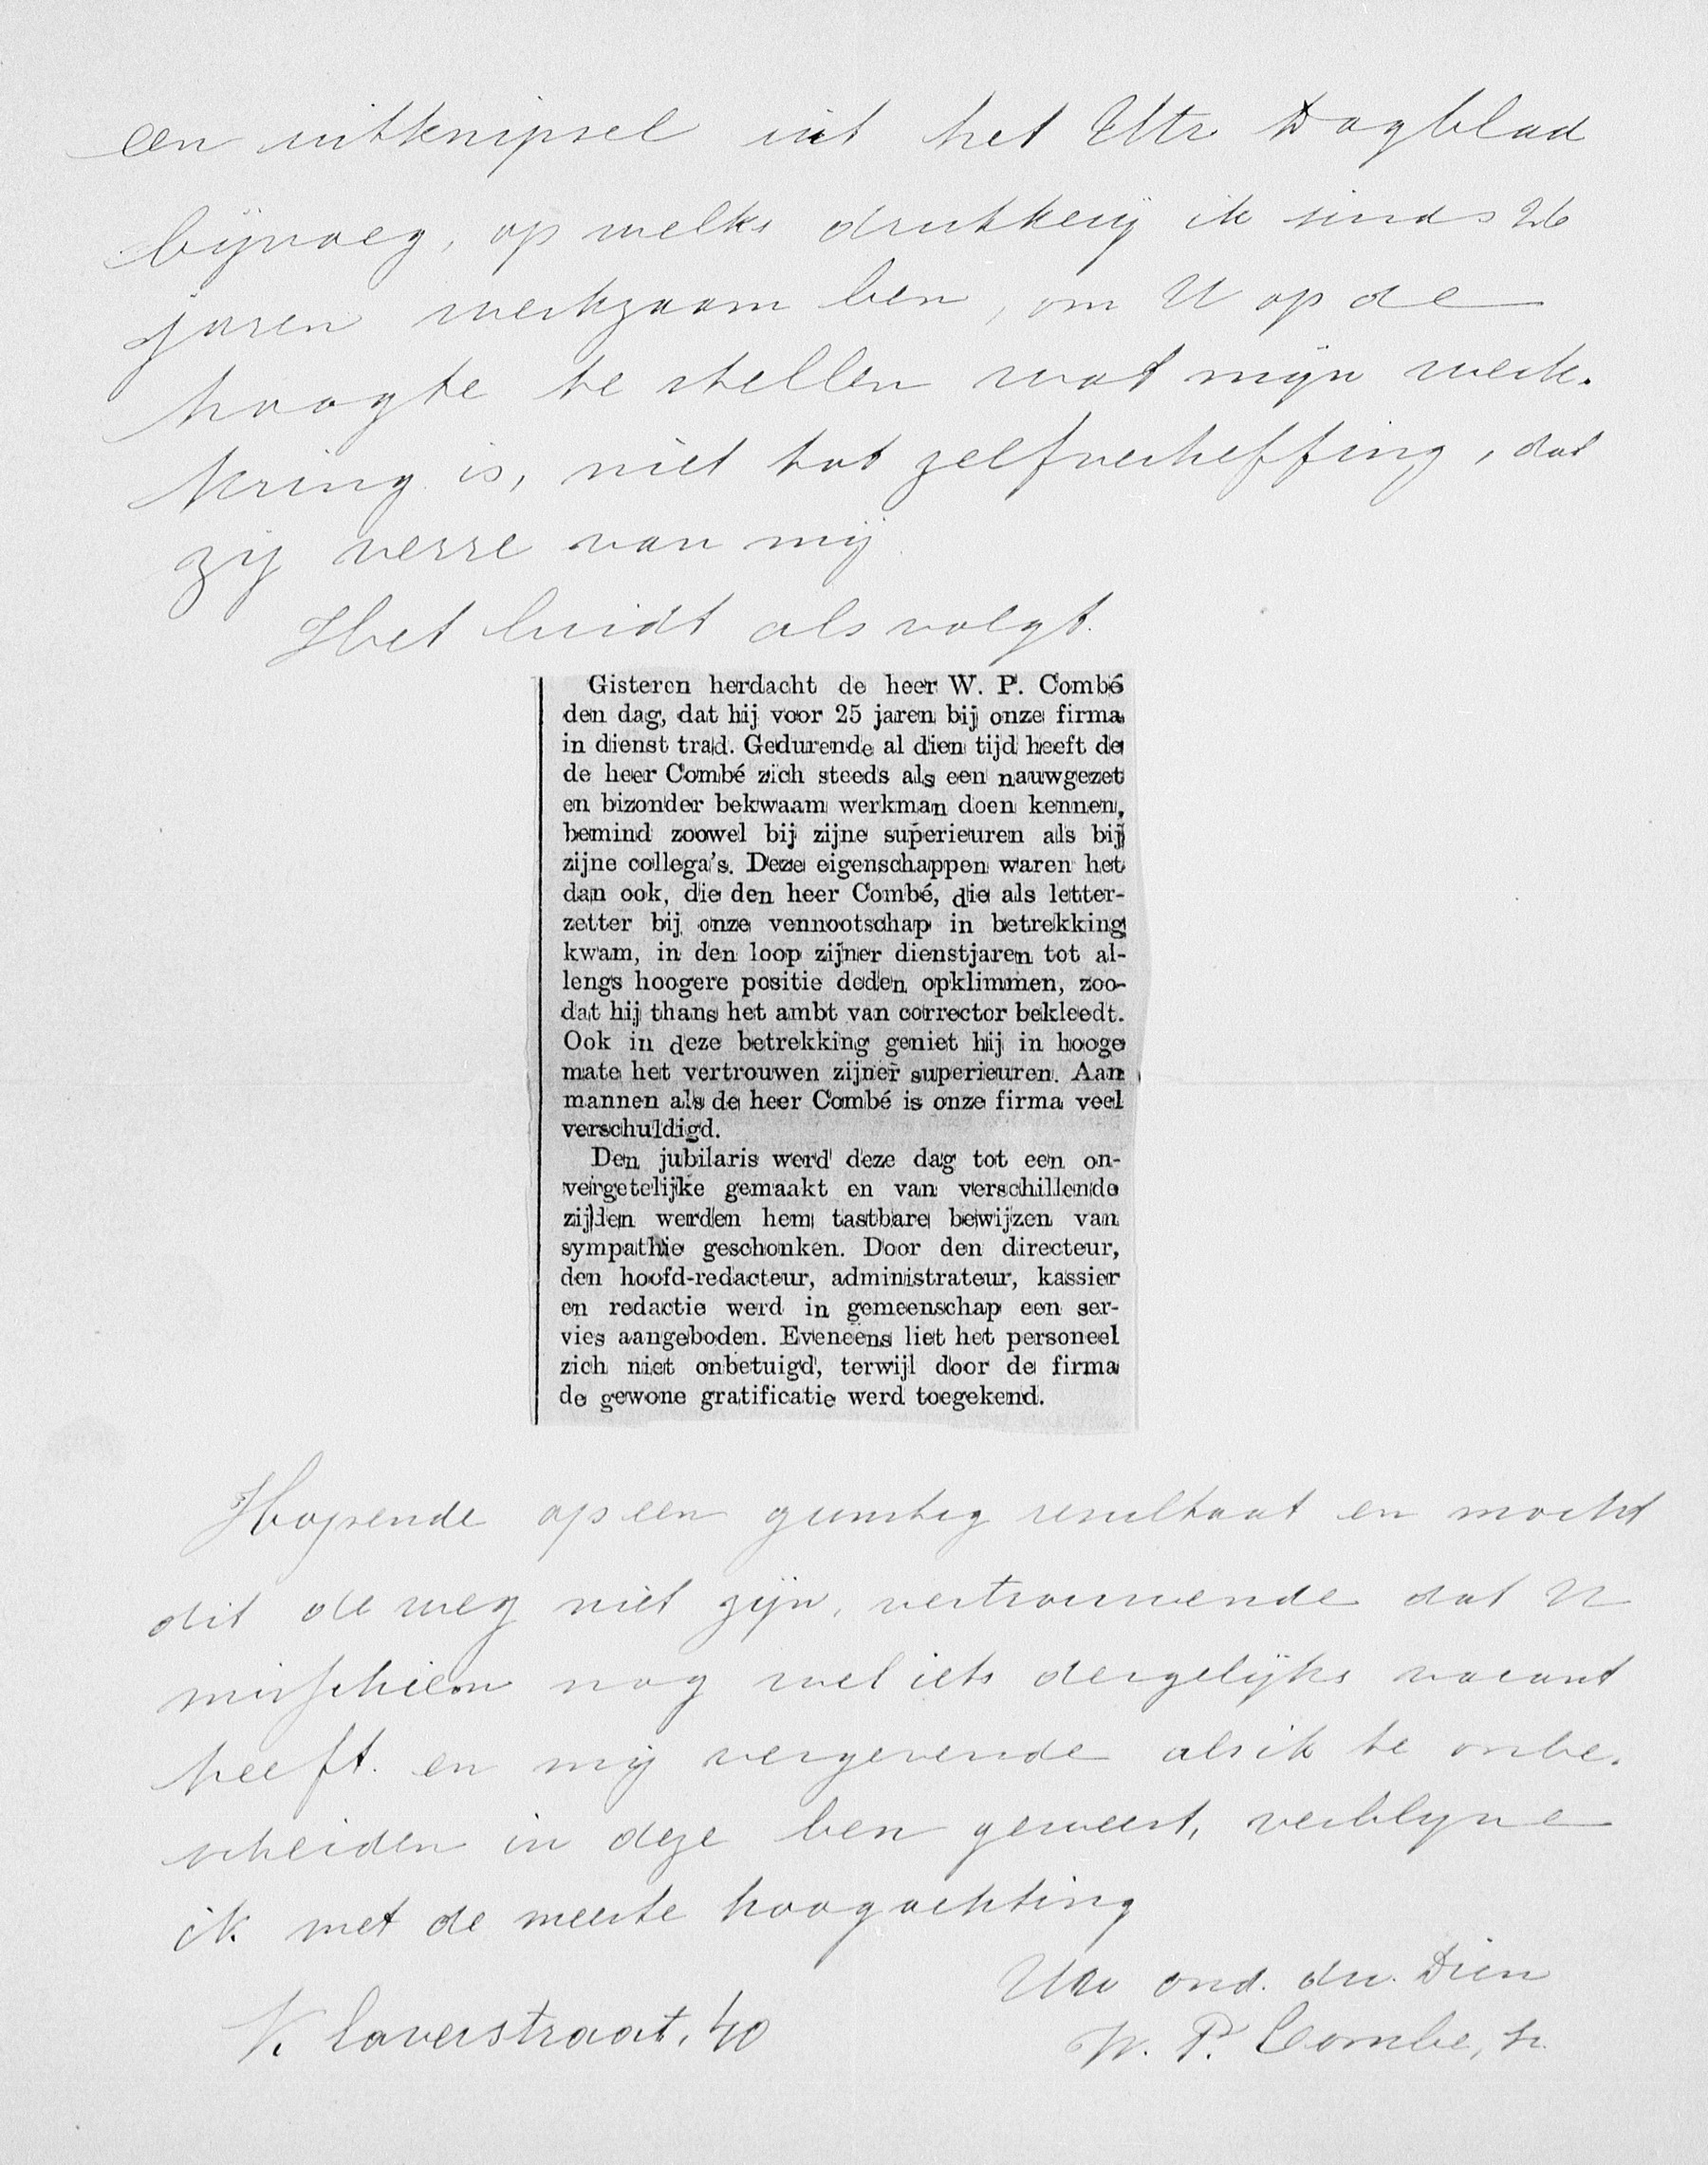 een uitknipsel uit het Utr. Dagblad
bijvoeg, op welks drukkerij ik sinds 26
jaren werkzaam ben, om U op de
hoogte te stellen wat mijn werk-
kring is, niet tot zelfverheffing, dat
zij verre van mij.
Het luidt als volgt.
Gisteren herdacht de heer W. P. Combé
den dag, dat hij voor 25 jaren bij onze firma
in dienst trad. Gedurende al dien tijd heeft de
de heer Combé zich steeds als een nauwgezet
en bizonder bekwaam werkman doen kennen,
bemind zoowel bij zijne superieuren als bij
zijne collega's. Deze eigenschappen waren het
dan ook, die den heer Combé, die als letter-
zetter bij onze vennootschap in betrekking
kwam, in den loop zijner dienstjaren tot al-
lengs hoogere positie deden opklimmen, zoo-
dat hij thans het ambt van corrector bekleedt.
Ook in deze betrekking geniet hij in hooge
mate het vertrouwen zijner superieuren. Aan
mannen als de heer Combé is onze firma veel
verschuldigd.
Den jubilaris werd deze dag tot een on-
vergetelijke gemaakt en van verschillende
zijden werden hem tastbare bewijzen van
sympathie geschonken. Door den directeur,
den hoofd-redacteur, administrateur, kassier
en redactie werd in gemeenschap een ser-
vies aangeboden. Eveneens liet het personeel
zich niet onbetuigd, terwijl door de firma
de gewone gratificatie werd toegekend.
Hopende op een gunstig resultaat en mocht
dit de weg niet zijn, vertrouwende dat U
misschien nog wel iets dergelijks vacant
heeft. en mij vergevende als ik te onbe-
scheiden in deze ben geweest, verblijve
ik met de meeste hoogachting
Uw ond. dw. Dien
K laverstraat, 40
W. P. Combe, Sr.